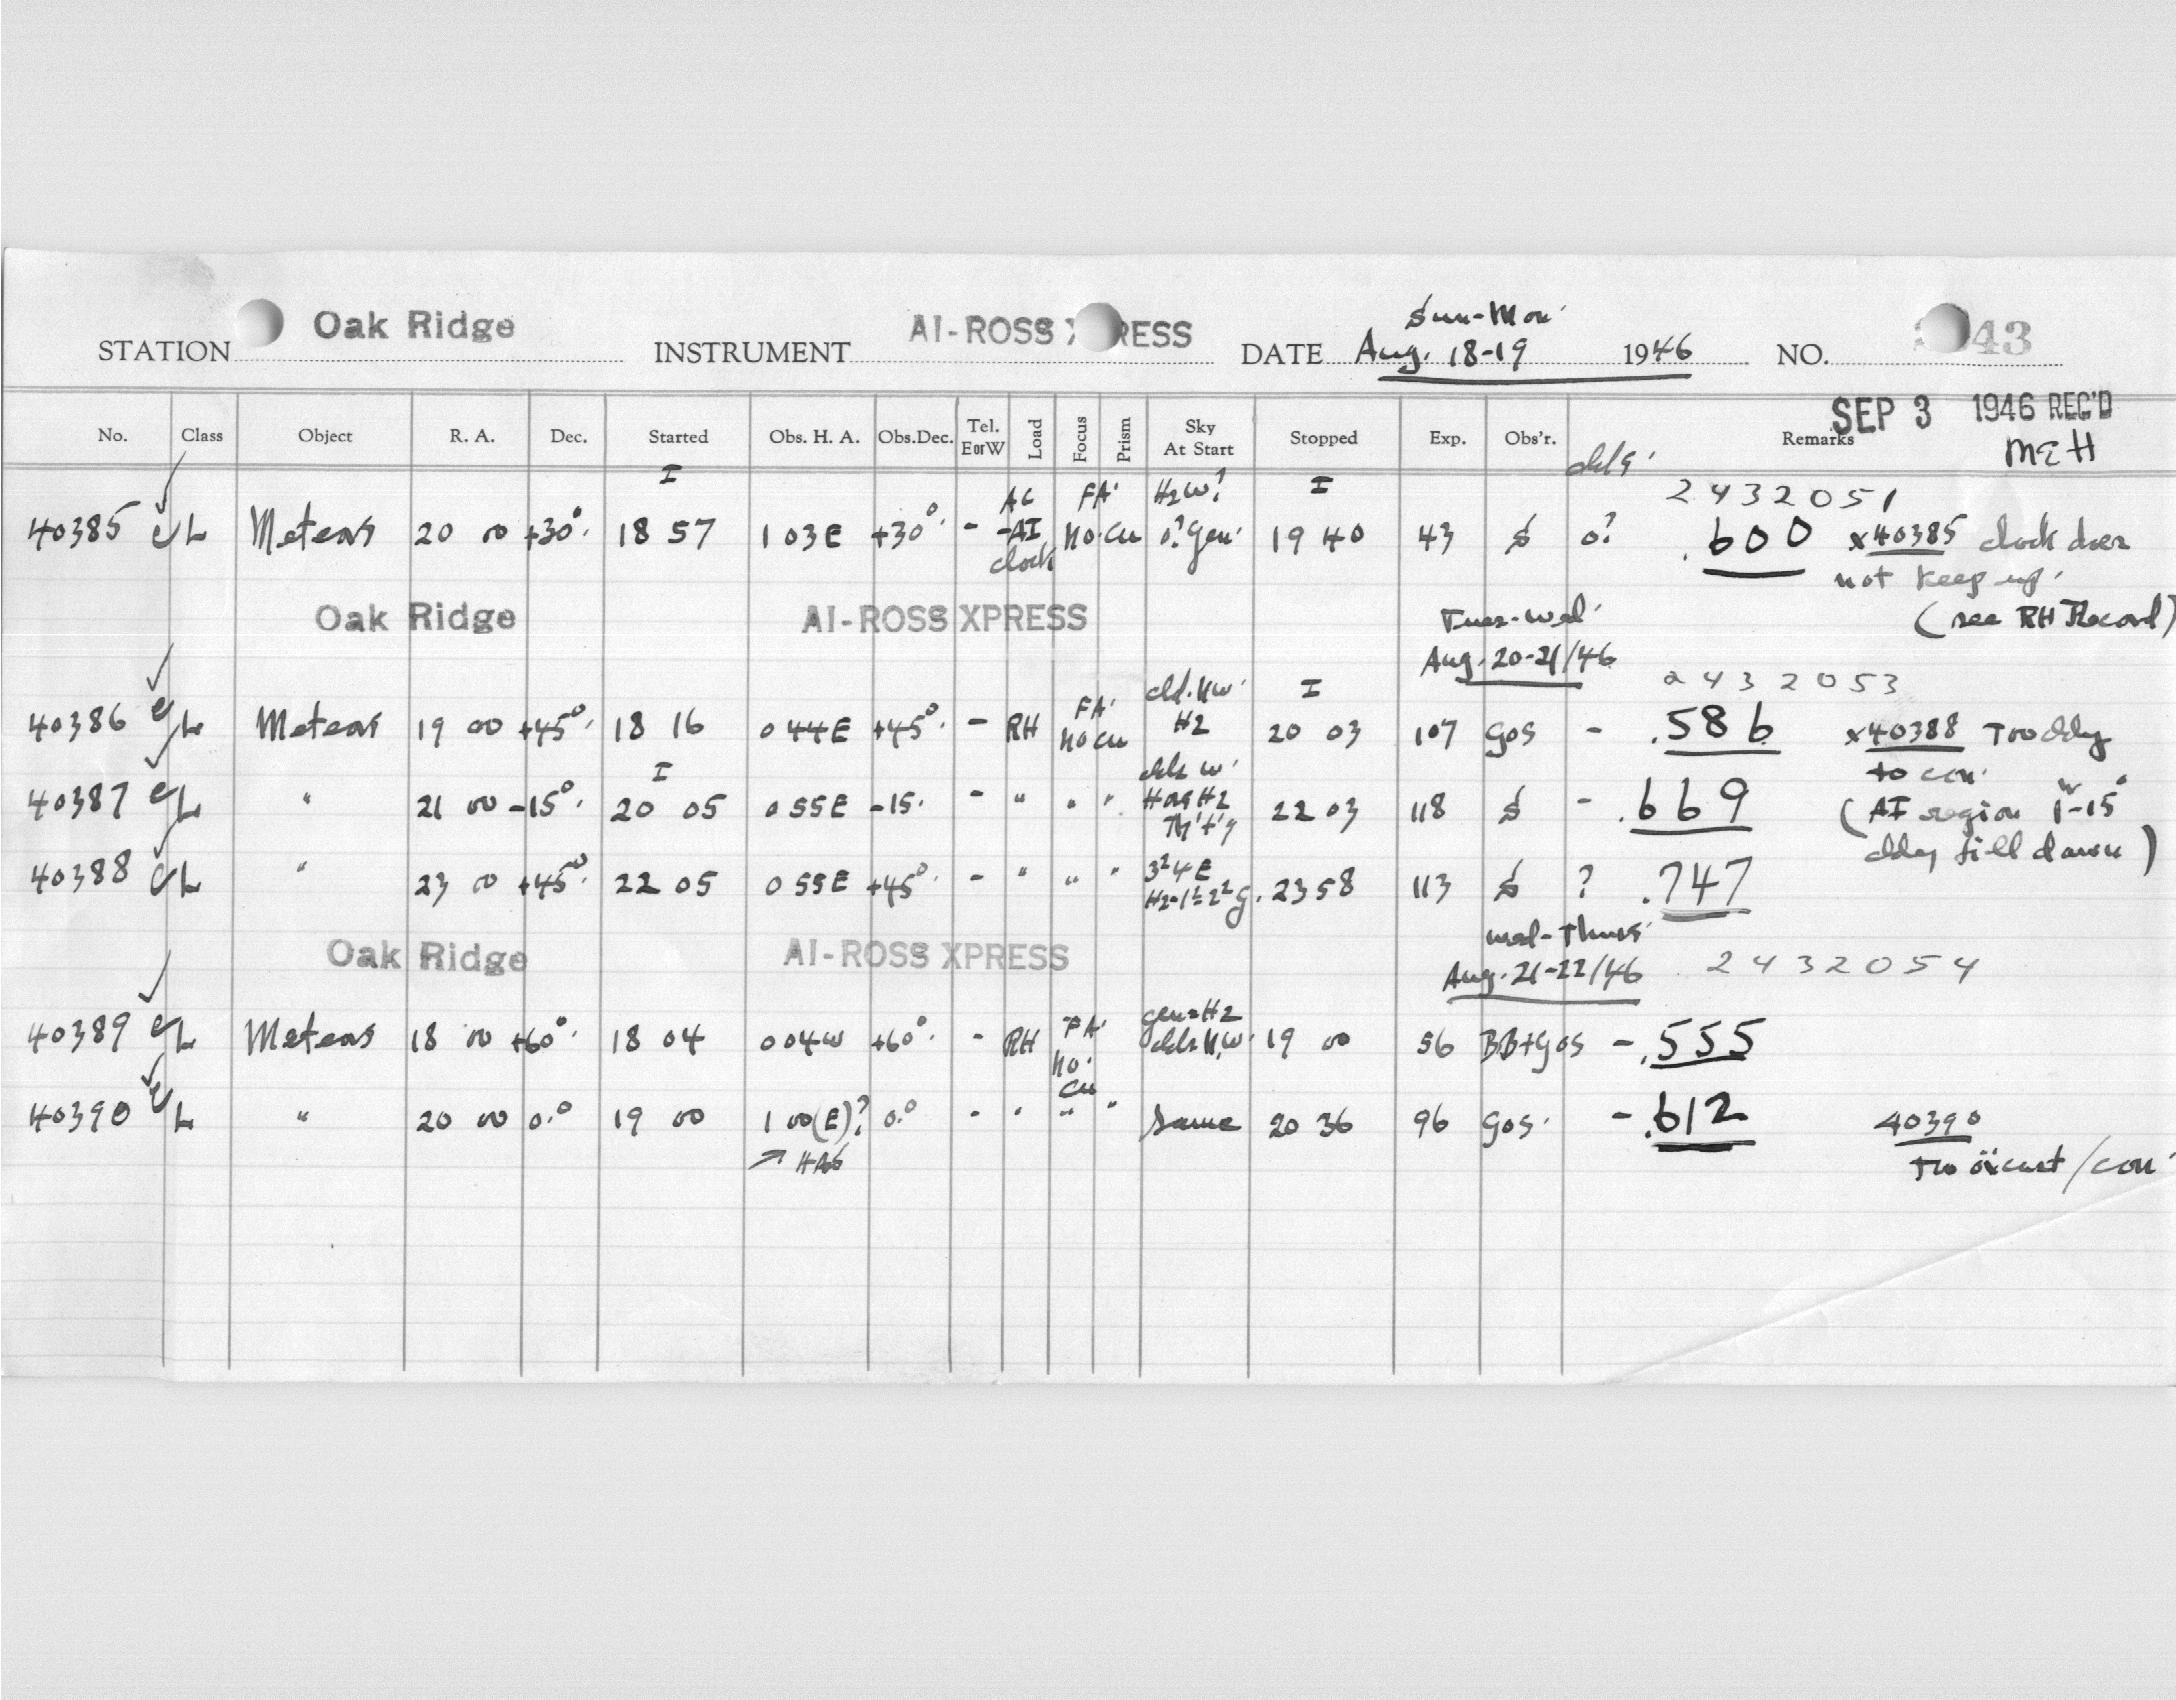 Sun-Mon
STATION Oak Ridge INSTRUMENT AI-ROSS X RESS DATE Aug. 18-19 1946 NO. 43
SEP 3 1946 REC'D
MEH
No. Class Object R. A. Dec. Started Obs. H. A. Obs.Dec. Tel. EorW Load Focus Prism Sky At Start Stopped Exp. Obs'r. Remarks
I I 2432051
40385 L Meteors 20 00 +30° 18 57 1 03E +30° - AI clock FA No Cu H2W? 0? Gen 19 40 43 $ 0? .600 x40385 clock does
not keep up.
(see RH Record)
Oak Ridge AI-ROSS XPRESS Tues-Wed
Aug. 20-21/46
2432053
I
40386 L Meteors 19 00 +45° 18 16 0 44E +45° - RH FA No Cu H2 20 03 107 Gos - .586 x40388 Too cldy
to con.
I
40387 L " 21 00 -15° 20 05 0 55E -15 - " " " 22 03 118 $ - .669 (AI region -15°
cldy till dawn)
40388 L " 23 00 +45° 22 05 0 55E +45° - " " " 23 58 113 $ ? .747
Oak Ridge AI-ROSS XPRESS Wed-Thurs
Aug. 21-22/46 2432054
40389 L Meteors 18 00 +60° 18 04 0 04W +60° - RH FA No Cu 19 00 56 BB+Gos - .555
40390 L " 20 00 0° 19 00 1 00(E)? 0° - " " " Same 20 36 96 Gos - .612 40390